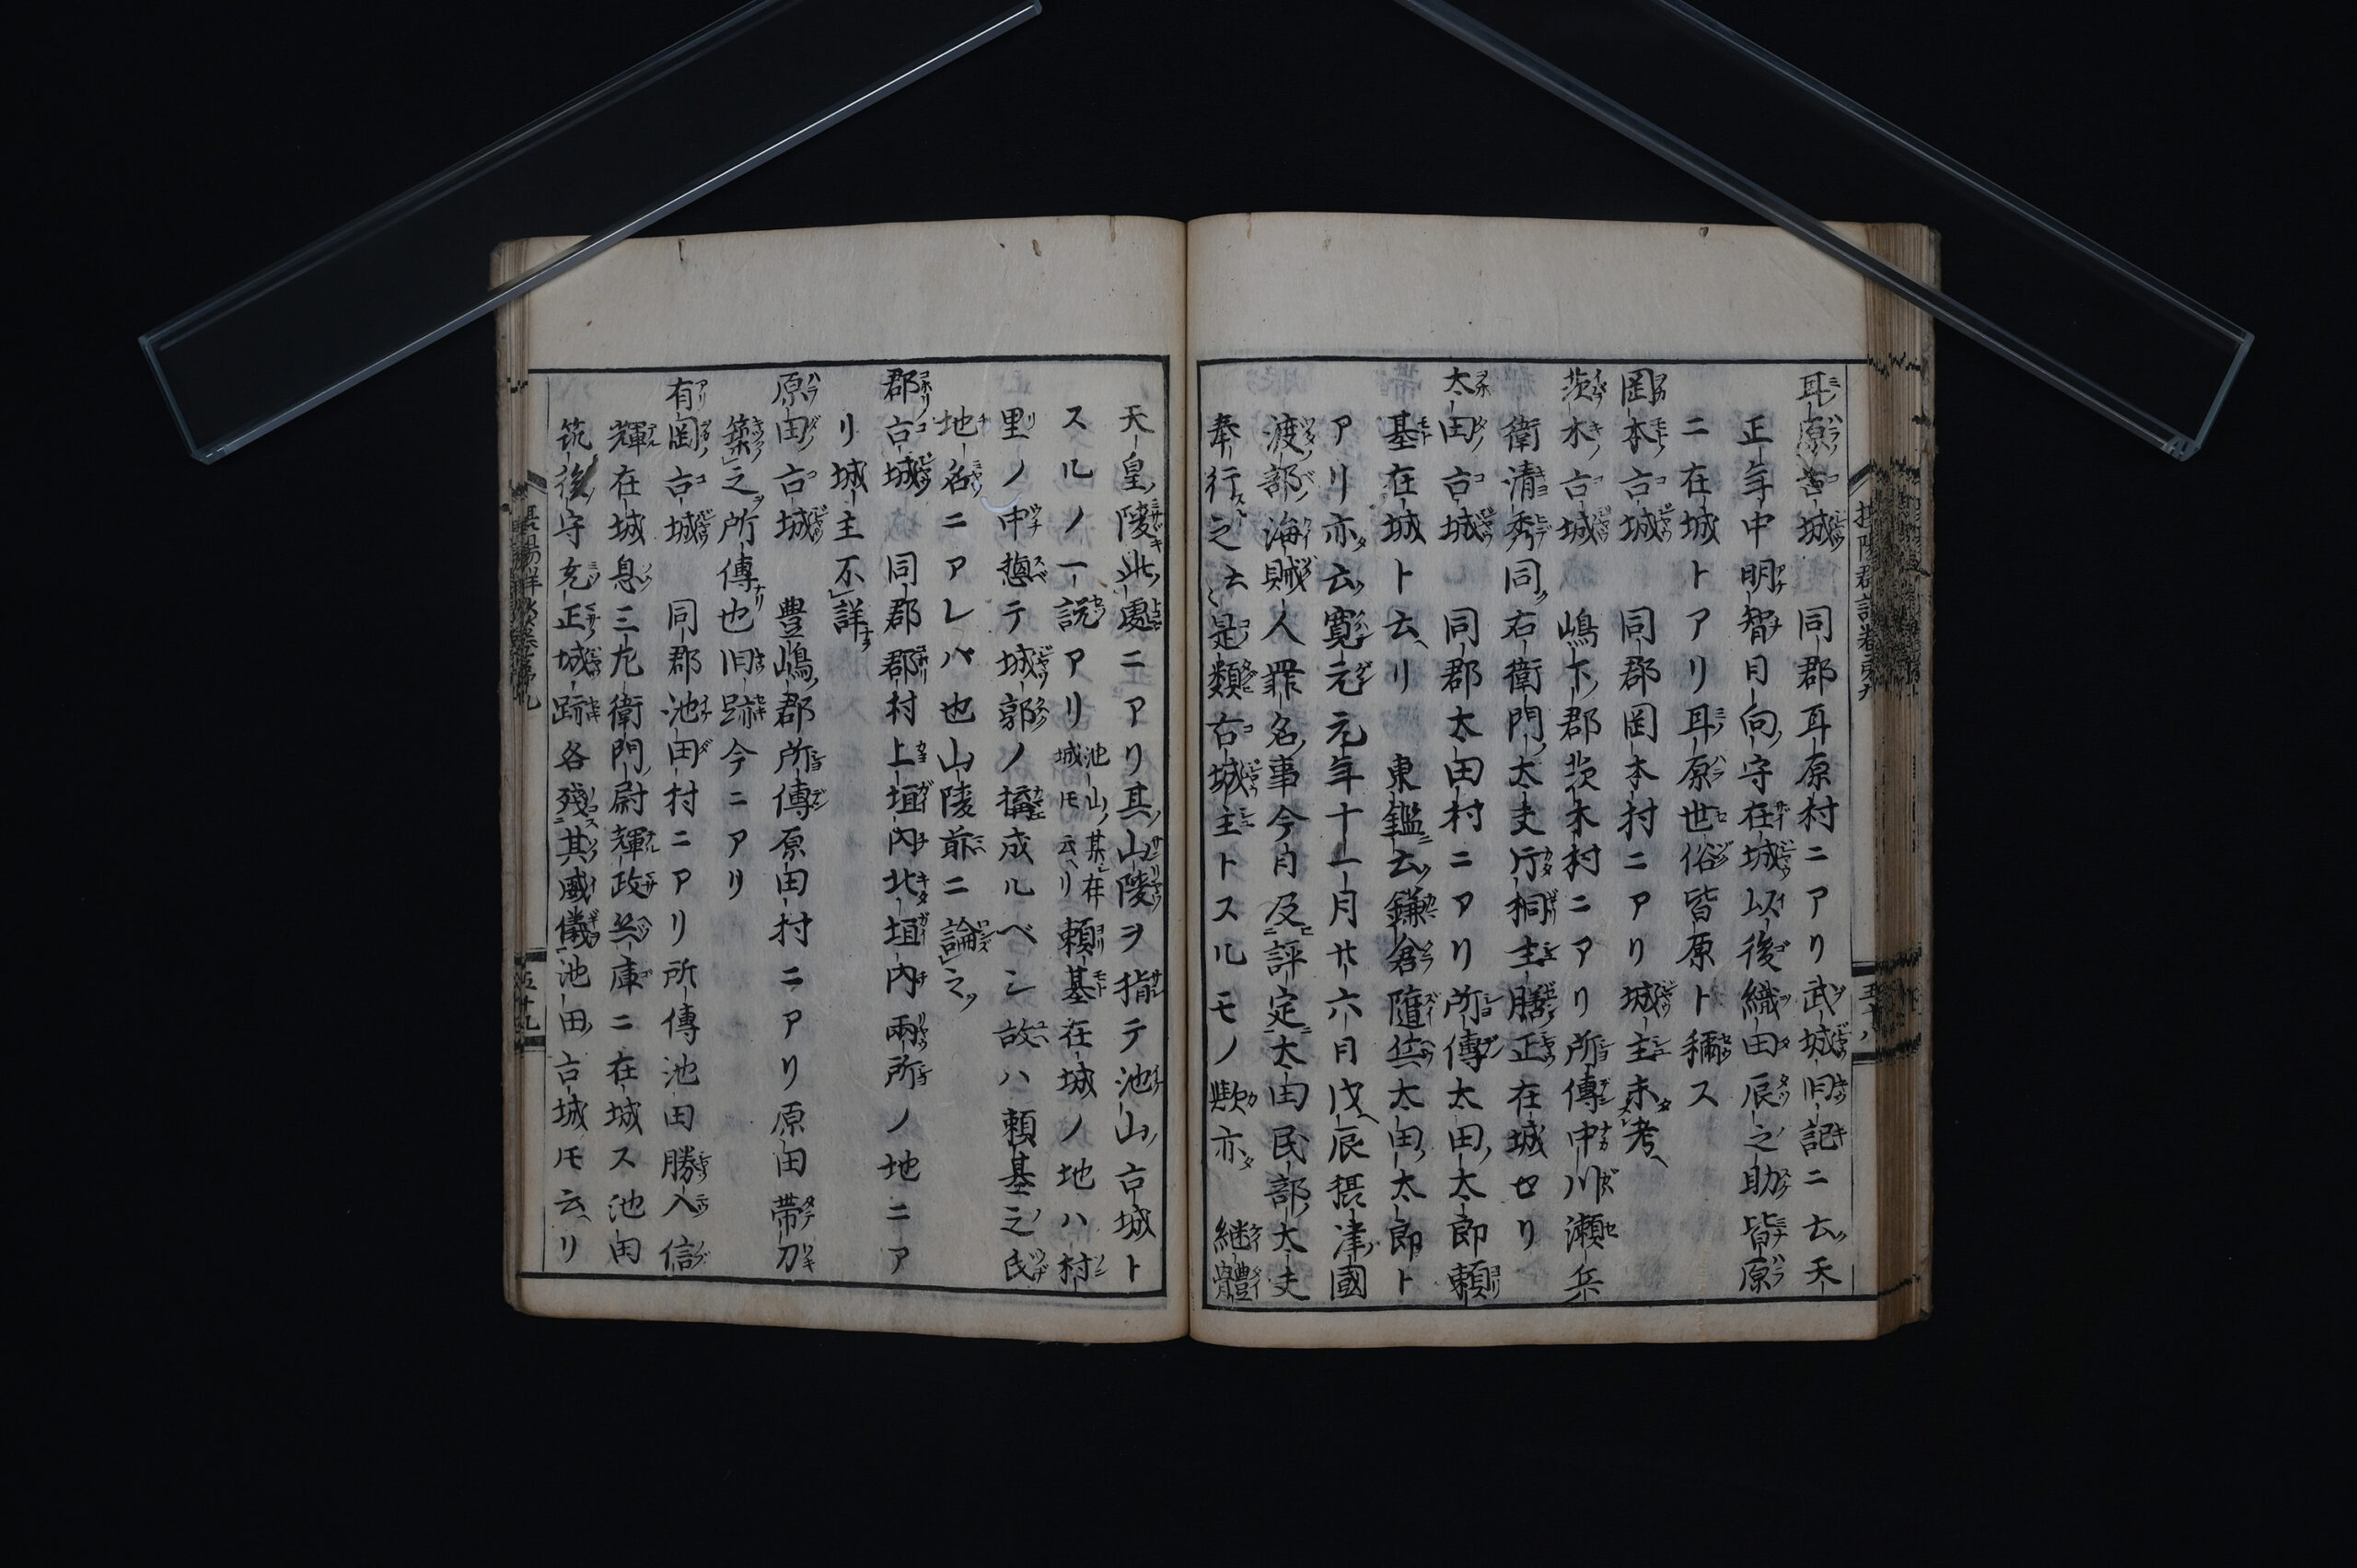 耳原古城　同郡耳原村ニアリ武城旧記ニ云天
正年中明智日向守在城以後織田辰之助皆原
ニ在城トアリ耳原世俗皆原ト稱ス
岡本古城　同郡岡本村ニアリ城主未考
茨木古城　嶋下郡茨木村ニアリ所傳中川瀬兵
衛清秀同右衛門太夫片桐主膳正在城セリ
太田古城　同郡太田村ニアリ所傳太田太郎頼
基在城ト云リ　東鑑云鎌倉隨兵太田太郎ト
アリ亦云寛元元年十一月廿六日戊辰摂津國
渡部海賊人罪名事今日及評定太田民部太夫
奉行之云々是類古城主トスルモノ歟亦　継體
天皇陵此處ニアリ其山陵ヲ指テ池山古城ト
スルノ一説アリ池山其在城モ云リ頼基在城ノ地ハ村
里ノ中惣テ城郭ノ構成ルベシ故ハ頼基之氏
地名ニアレバ也山陵前ニ論之
郡古城　同郡郡村上垣内北垣内兩所ノ地ニア
リ城主不詳
原田古城　豊嶋郡所傳原田村ニアリ原田帯刀
築之所傳也旧跡今ニアリ
有岡古城　同郡池田村ニアリ所傳池田勝入信
輝在城息三左衛門尉輝政兵庫ニ在城ス池田
筑後守充正城跡各殘其威儀池田古城モ云リ